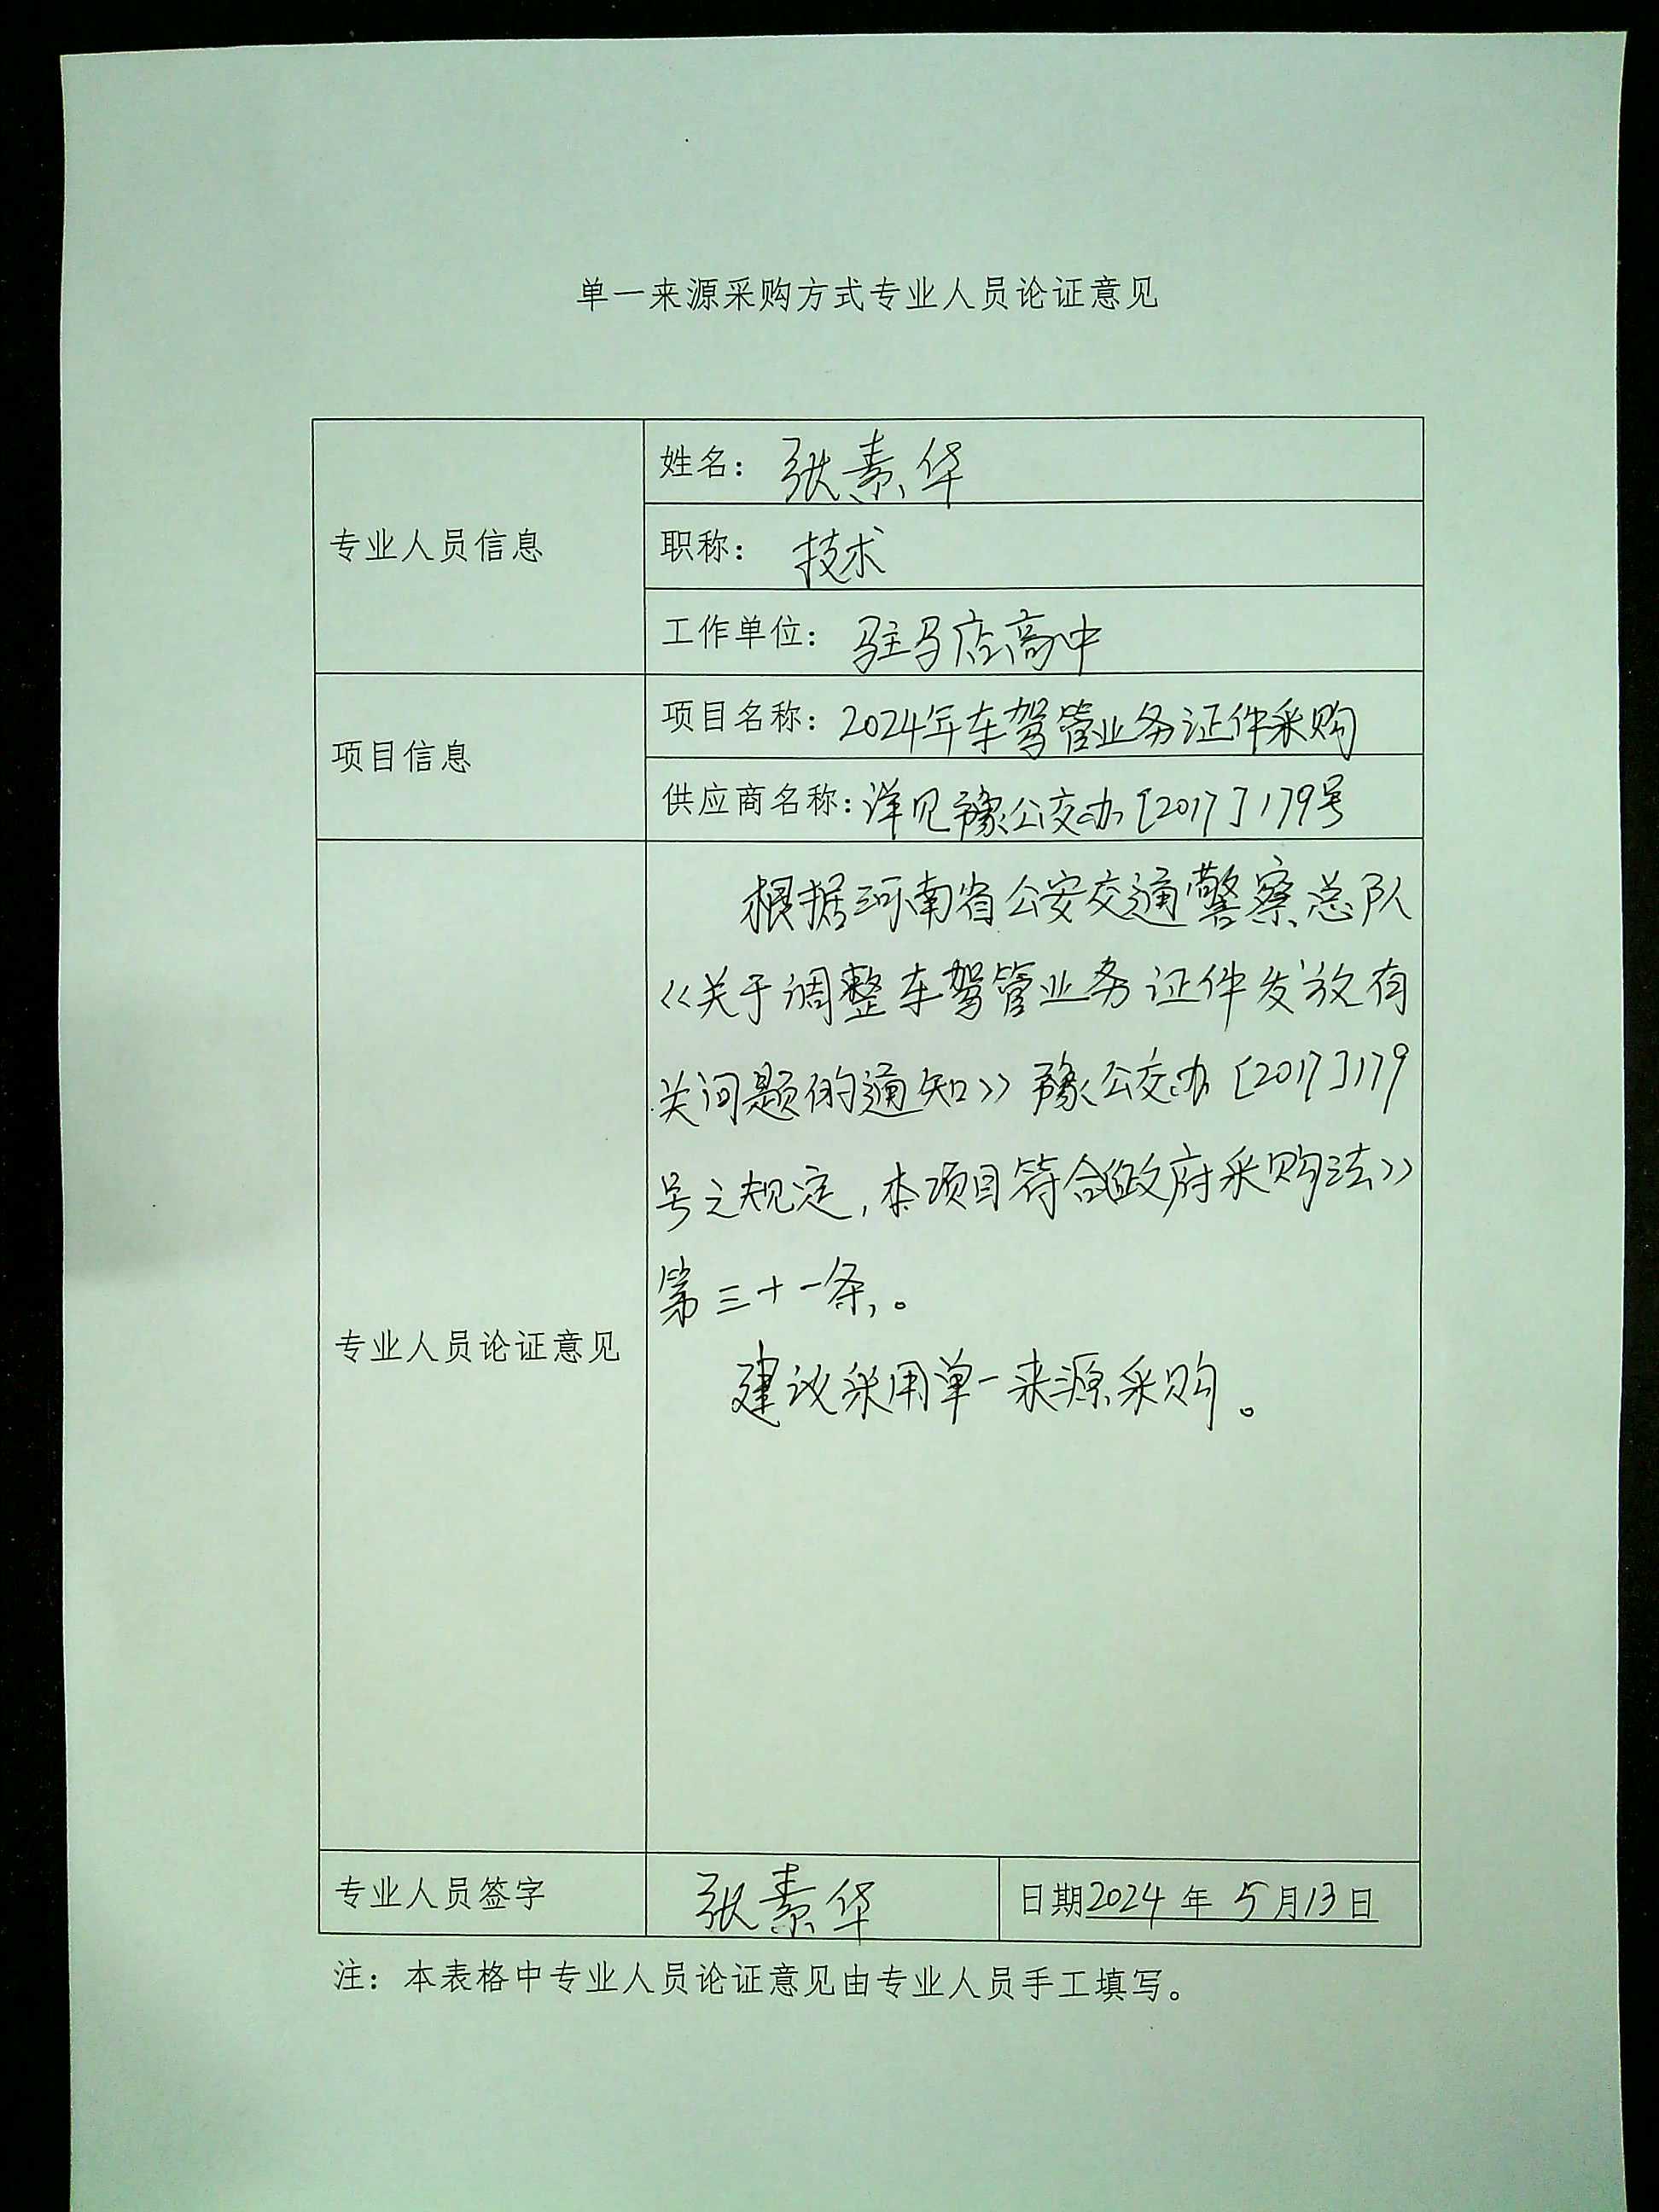 单一来源采购方式专业人员论证意见
专业人员信息
姓名：张素华
职称：技术
工作单位：驻马店高中
项目信息
项目名称：2024年车驾管业务证件采购
供应商名称：详见豫公交办［2017］179号
专业人员论证意见
根据河南省公安交通警察总队
《关于调整车驾管业务证件发放有
关问题的通知》豫公交办［2017］179
号之规定，本项目符合《政府采购法》
第三十一条，。
建议采用单一来源采购。
专业人员签字
张素华
日期2024年5月13日
注：本表格中专业人员论证意见由专业人员手工填写。